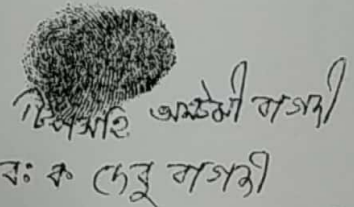 টিপসহি অষ্টমী বাগদী
বঃ কঃ দেবু বাগদী